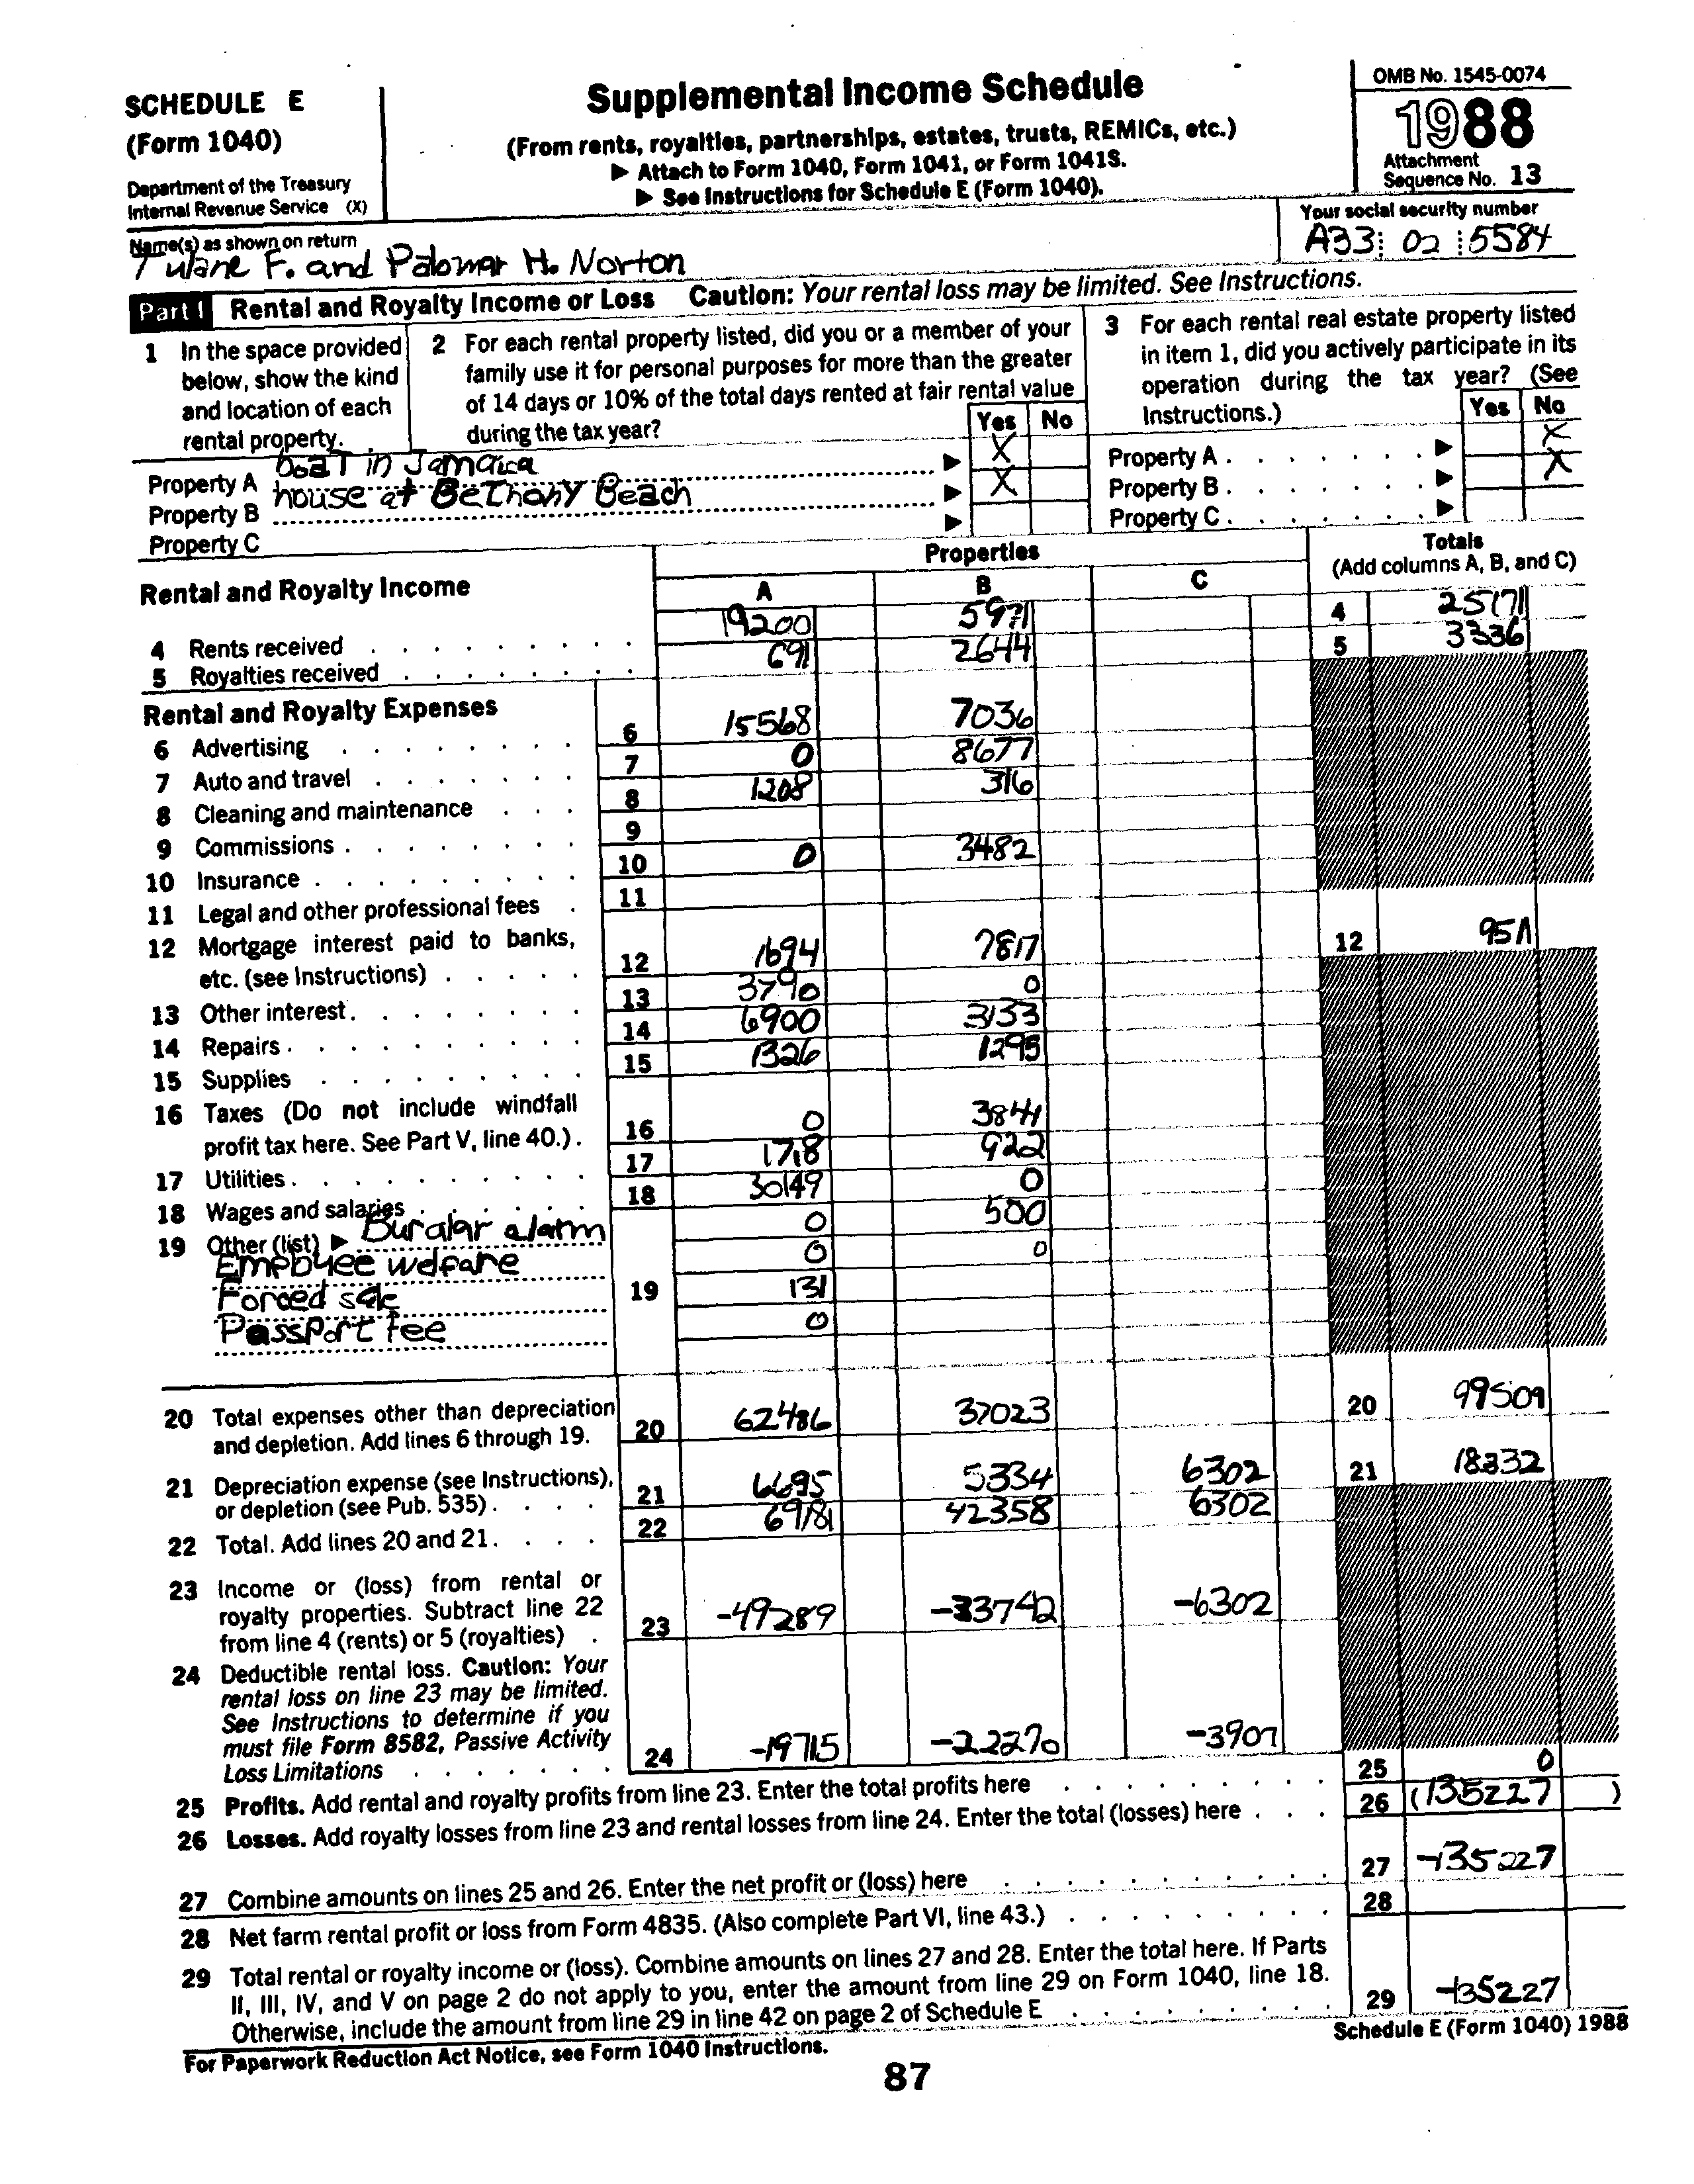 SCHEDULE E
(Form 1040)
Department of the Treasury
Internal Revenue Service (X)
Supplemental Income Schedule
(From rents, royalties, partnerships, estates, trusts, REMICs, etc.)
▶ Attach to Form 1040, Form 1041, or Form 1041S.
▶ See Instructions for Schedule E (Form 1040).
OMB No. 1545-0074
1988
Attachment
Sequence No. 13
Name(s) as shown on return
Tulane F. and Palomar H. Norton
Your social security number
A33 02 5584
Part I Rental and Royalty Income or Loss Caution: Your rental loss may be limited. See Instructions.
1 In the space provided
below, show the kind
and location of each
rental property.
2 For each rental property listed, did you or a member of your
family use it for personal purposes for more than the greater
of 14 days or 10% of the total days rented at fair rental value
during the tax year?
Yes No
3 For each rental real estate property listed
in item 1, did you actively participate in its
operation during the tax year? (See
Instructions.)
Yes No
Property A boat in Jamaica ▶ X
Property B house at Bethany Beach ▶ X
Property C ▶
Property A ▶ X
Property B ▶ X
Property C ▶
Properties
Totals
(Add columns A, B, and C)
Rental and Royalty Income A B C
4 Rents received 19200 5971 4 25171
5 Royalties received 691 2644 5 3336
Rental and Royalty Expenses
6 Advertising 6 15568 7036
7 Auto and travel 7 0 8677
8 Cleaning and maintenance 8 1208 316
9 Commissions 9
10 Insurance 10 0 3482
11 Legal and other professional fees 11
12 Mortgage interest paid to banks,
etc. (see Instructions) 12 1694 7817 12 9511
13 Other interest 13 3790 0
14 Repairs 14 6900 3133
15 Supplies 15 1326 1295
16 Taxes (Do not include windfall
profit tax here. See Part V, line 40.) 16 0 3841
17 Utilities 17 1718 922
18 Wages and salaries 18 30149 0
19 Other (list) ▶ Buralar alarm 0 500
Employee welfare 0 0
Forced sale 19 131
Passport fee 0
20 Total expenses other than depreciation
and depletion. Add lines 6 through 19. 20 62486 37023 20 99509
21 Depreciation expense (see Instructions),
or depletion (see Pub. 535) 21 6695 5334 6302 21 18332
22 Total. Add lines 20 and 21. 22 69181 42358 6302
23 Income or (loss) from rental or
royalty properties. Subtract line 22
from line 4 (rents) or 5 (royalties) 23 -49289 -33742 -6302
24 Deductible rental loss. Caution: Your
rental loss on line 23 may be limited.
See Instructions to determine if you
must file Form 8582, Passive Activity
Loss Limitations 24 -19715 -22270 -3907
25 Profits. Add rental and royalty profits from line 23. Enter the total profits here 25 0
26 Losses. Add royalty losses from line 23 and rental losses from line 24. Enter the total (losses) here 26 (135227)
27 Combine amounts on lines 25 and 26. Enter the net profit or (loss) here 27 -135227
28 Net farm rental profit or loss from Form 4835. (Also complete Part VI, line 43.) 28
29 Total rental or royalty income or (loss). Combine amounts on lines 27 and 28. Enter the total here. If Parts
II, III, IV, and V on page 2 do not apply to you, enter the amount from line 29 on Form 1040, line 18.
Otherwise, include the amount from line 29 in line 42 on page 2 of Schedule E 29 -135227
For Paperwork Reduction Act Notice, see Form 1040 Instructions. Schedule E (Form 1040) 1988
87